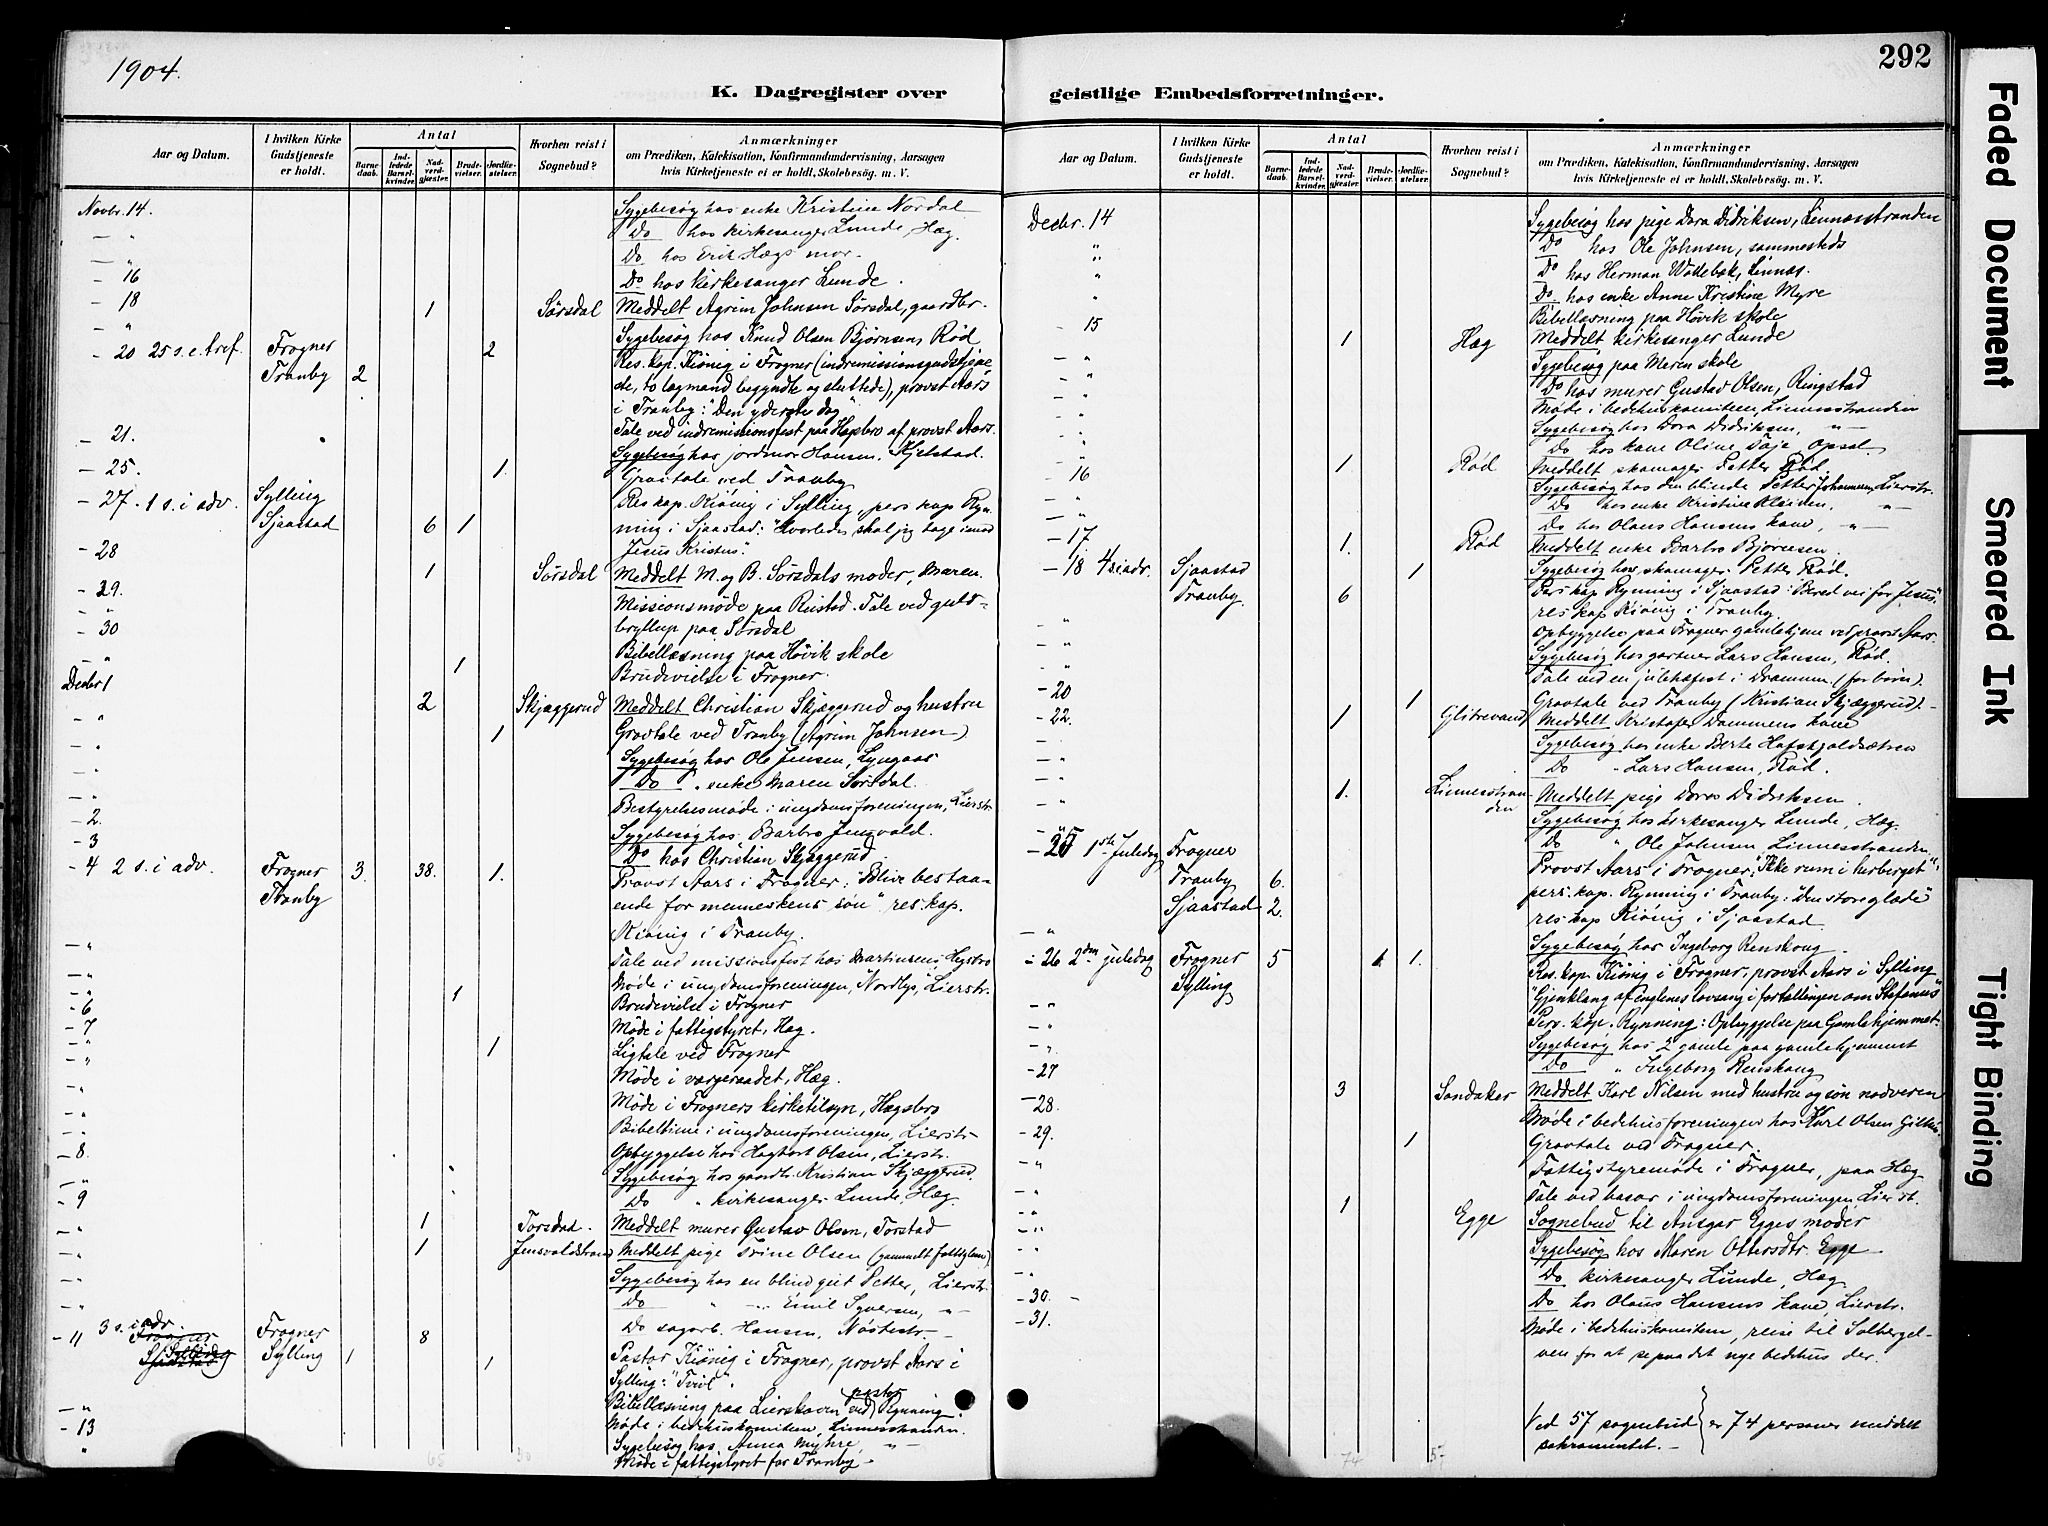 1904.
K. Dagregister over
Aar og Datum.
I hvilken Kirke Gudstjeneste er holdt.
Antal
Barnedaab.
Indledede Barselkvinder.
Nadverdgjæster.
Brudevielser.
Jordfæstelser.
Hvorhen reist i Sognebud?
Anmærkninger
om Prædiken, Katekisation, Konfirmandundervisning, Aarsagen
hvis Kirketjeneste ei er holdt, Skolebesøg. m. V.
Novbr. 14. Sygebesøg hos enke Kristine Nordal
— " Do hos kirkesanger Lunde, Hæg.
— " Do hos Erik Hægs mor.
— 16 Do hos kirkesanger Lunde.
— 18 1 Sørsdal Meddelt Agrim Johnsen Sørsdal, gaardbr.
— " Sygebesøg hos Knud Olsen Bjørnsen, Rød
— 20 25 s. e. tref. Frogner 2 Res. kap. Kiønig i Frogner (indremissionsgudstjene
Tranby 2 de, to lægmand begyndte og sluttede), provst Aars
i Tranby: "Den yderste dag"
— 21. Tale ved indremissionsfest paa Hægsbro af provst Aars.
Sygebesøg hos jordmor Hansen, Kjelstad.
— 25. 1. Gravtale ved Tranby
— 27. 1 s. i adv. Sylling Res. kap. Kiønig i Sylling, pers. kap. Ryn-
Sjaastad 6 1 ning i Sjaastad: "Hvorledes skal jeg tage imod
Jesus Kristus".
— 28 1 Sørsdal Meddelt M. og B. Sørsdals moder, Maren.
— 29. Missionsmøde paa Rustad. Tale ved guld-
bryllup paa Sørsdal
— 30 Bibellæsning paa Høvik skole
— " 1 Brudevielse i Frogner.
Decbr 1 2 Skjæggerud Meddelt Christian Skjæggerud og hustru
— " 1 Gravtale ved Tranby (Agrim Johnsen)
— " Sygebesøg hos Ole Jensen, Lyngaas
— " Do " enke Maren Sørsdal.
— " Bestyrelsesmøde i ungdomsforeningen, Lierstr.
— 2. Sygebesøg hos Barbro Jensvold.
— 3 Do hos Christian Skjæggerud.
— 4 2 s. i adv. Frogner 3. 38. 1. Provst Aars i Frogner: "Blive bestaa-
Tranby ende for menneskens søn". res. kap.
Kiønig i Tranby.
— " Tale ved missionsfest hos Martinsen, Hegsbro
— " Møde i ungdomsforeningen, Nordlys, Lierstr.
— " 1 Brudevielse i Frogner
— 6 Møde i fattigstyret, Hæg.
— 7 1 Ligtale ved Frogner
— " Møde i værgeraadet, Hæg.
— " Møde i Frogners kirketilsyn, Hægsbro
— " Bibeltime i ungdomsforeningen, Lierstr
— " Opbyggelse hos Hagbart Olsen, Lierstr.
— 8. Sygebesøg hos gaardbr. Kristian Skjæggerud.
— " Do " kirkesanger Lunde, Hæg.
— 9 1 Torsdad. Meddelt murer Gustav Olsen, Torstad
— " 1 Jensvoldstrand Meddelt pige Trine Olsen (gammelt fattiglem)
— " Sygebesøg hos en blind gut Petter, Lierstr.
— " Do " Emil Syversen, "
— " Do sagarb. Hansen, Nøstestr.
— 11 3 s. i adv. Frogner 8 Pastor Kiønig i Frogner, provst Aars i
Sylling 1 1 Sylling: "Tvil".
— " Bibellæsning paa Lierskoven ved pastor Rynning.
— 13 Møde i bedehuskomiteen, Linnesstranden.
" Sygebesøg hos Anna Myhre, "
Møde i fattigstyret for Tranby
292
geistlige Embedsforretninger.
Aar og Datum.
I hvilken Kirke Gudstjeneste er holdt.
Antal
Barnedaab.
Indledede Barselkvinder.
Nadverdgjæster.
Brudevielser.
Jordfæstelser.
Hvorhen reist i Sognebud?
Anmærkninger
om Prædiken, Katekisation, Konfirmandundervisning, Aarsagen
hvis Kirketjeneste ei er holdt, Skolebesøg. m. V.
Decbr. 14 Sygebesøg hos pige Dora Didriksen, Linnesstranden
" Do hos Ole Johnsen, sammesteds
" Do hos Herman Wattebæk, Linnæs.
" Do hos enke Anne Kristine Myre
" Bibellæsning paa Høvik skole
— 15 1 Hæg Meddelt kirkesanger Lunde
— " Sygebesøg paa Meren skole
— " Do hos murer Gustav Olsen, Ringstad
" Møde i bedehuskomiteen, Linnesstranden
" Sygebesøg hos Dora Didriksen, "
" Do hos kone Oline Taje Opsal
— 16 1 Rød Meddelt skomager Petter Rød.
" Sygebesøg hos den blinde Petter Johannesen, Lierstr.
— " Do hos enke Kristine Kløiden, "
— " Do hos Olaus Hansens kone, "
— 17 1. Rød Meddelt enke Barbro Bjørnsen.
— 18 4 s. i adv. Sjaastad 1 Sygebesøg hos skomager Petter Rød.
Tranby. 6 Pers. kap. Rynning i Sjaastad: "Bered vei for Jesus",
res. kap. Kiønig i Tranby.
— " Opbyggelse paa Frogner gamlehjem ved provst Aars.
— " Sygebesøg hos gartner Lars Hansen, Rød.
— " Tale ved en julefest i Drammen (for børn).
— 20 1 Gravtale ved Tranby (Kristian Skjæggerud).
— 22. 1 Glitrevand Meddelt Kristofer Dammens kone
— " Sygebesøg hos enke Berte Hafskjoldsætren
— " Do " Lars Hansen, Rød.
— " 1. Linnesstranden Meddelt pige Dora Didriksen
— " Sygebesøg hos kirkesanger Lunde, Hæg.
— " Do " Ole Johnsen, Linnesstranden.
— 25 1ste Juledag Frogner Provst Aars i Frogner: "Ikke rum i herberget";
Tranby 6. pers. kap. Rynning i Tranby: "Den store glæde"
Sjaastad 2. res. kap Kiønig i Sjaastad.
— " Sygebesøg hos Ingeborg Renskoug
— 26 2den juledag Frogner 5 1 1. Res. kap. Kiønig i Frogner, provst Aars i Sylling
Sylling "Gjenklang af englenes lovsang i fortællingen om Stefanus"
— " Pers. kap. Rynning: Opbyggelse paa Gamlehjemmet.
— " Sygebesøg hos 2 gamle paa gamlehjemmet
— " Do " Ingeborg Renskoug
— 27 3 Sandaker Meddelt Karl Nilsen med hustru og søn nadveren
— 28. Møde i bedehusforeningen hos Karl Olsen Gilhus.
— 29. 1 Gravtale ved Frogner.
— " Fattigstyremøde i Frogner, paa Hæg
— " Tale ved basar i ungdomsforeningen, Lierst.
— " 1 Egge Sognebud til Ansgar Egges moder
— " Sygebesøg hos Maren Ottersdtr. Egge
— " Do kirkesanger Lunde, Hæg
— 30. Do hos Olaus Hansens kone, Lierstr.
— 31. Møde i bedehuskomiteen, reise til Solbergel-
ven for at se paa det nye bedehus der.
Ved 57 sognebud er 74 personer meddelt
sakramentet.
74
Faded Document
Smeared Ink
Tight Binding